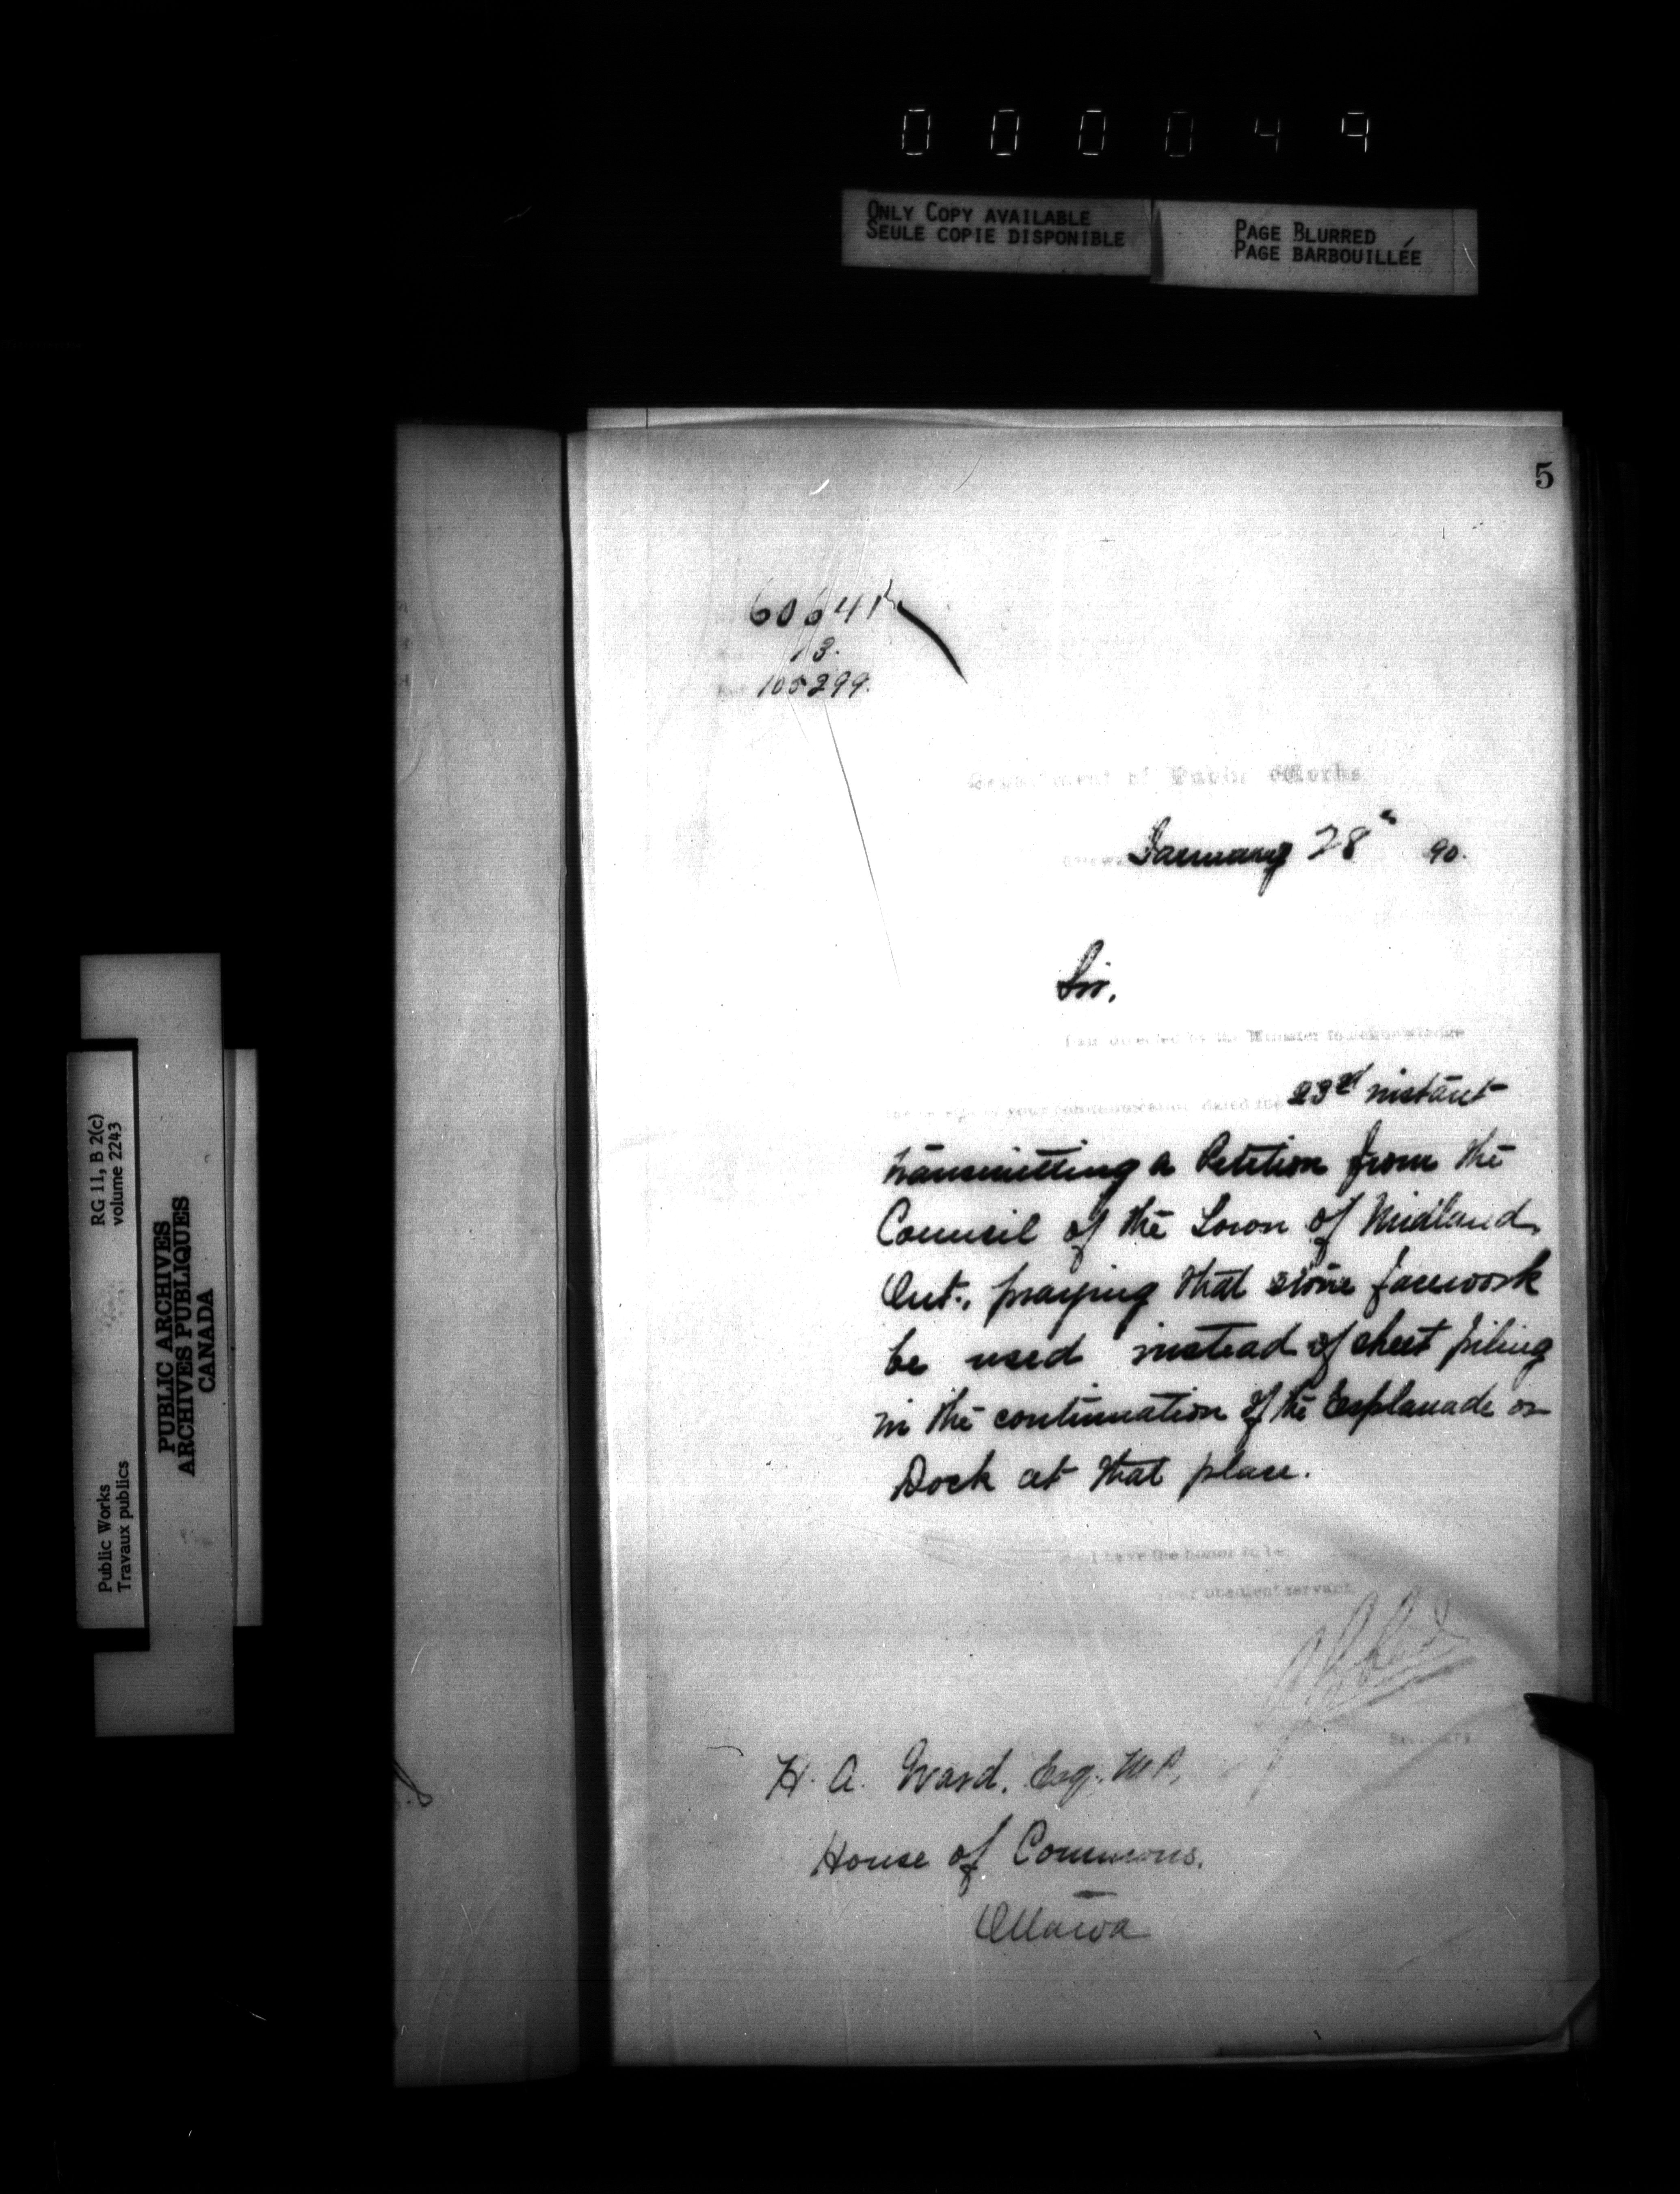 000049
ONLY COPY AVAILABLE
SEULE COPIE DISPONIBLE
PAGE BLURRED
PAGE BARBOUILLÉE
5
60641
13.
105299.
Department of Public Works
January 28th 90.
Sir,
I am directed by the Minister to acknowledge
your communication dated the 23rd instant
transmitting a Petition from the
Council of the Town of Midland,
Ont., praying that stone facework
be used instead of sheet piling
in the continuation of the Esplanade or
Dock at that place.
I have the honor to be
your obedient servant
Secretary
H. A. Ward, Esq. M.P.,
House of Commons.
Ottawa
RG 11, B 2(c)
volume 2243
Public Works
Travaux publics
PUBLIC ARCHIVES
ARCHIVES PUBLIQUES
CANADA